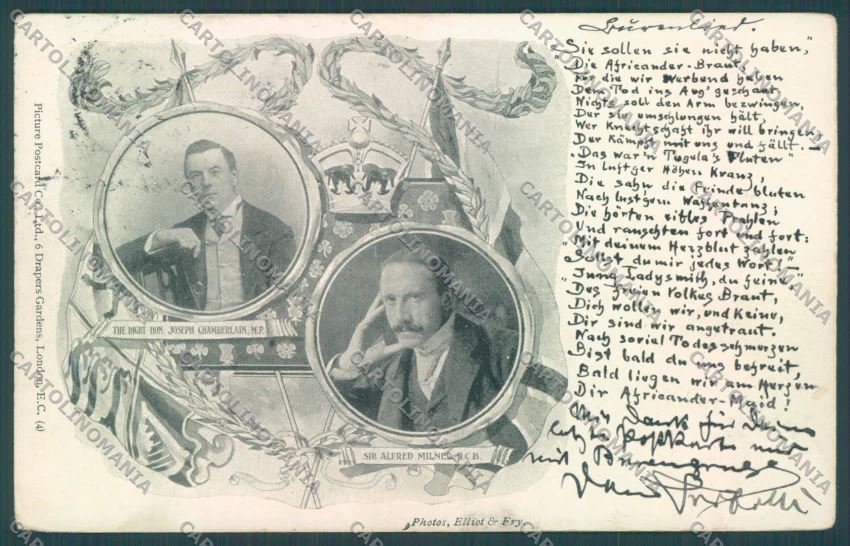 Burenlied.
"Sie sollen sie nicht haben,"
Die Africander-Braut,
Für die wir werbend haben
Dem Tod ins Aug' geschaut,
Nichts soll den Arm bezwingen,
Der sie umschlungen hält,
Wer Knechtschaft ihr will bringen,
Der kämpft mit uns und fällt. —
"Das war'n Tugela's Fluten"
In lust'ger Höhen Kranz,
Die sahn die Feinde bluten
Nach lust'gem Waffentanz;
Die hörten eitles Prahlen
Und rauschten fort und fort:
"Mit deinem Herzblut zahlen
Sollst du mir jedes Wort!" —
"Jung Ladysmith, du feine"
Des freien Volkes Braut,
Dich wollen wir, und Keine,
Dir sind wir angetraut.
Nach soviel Todesschmerzen
Bist bald du uns befreit,
Bald liegen wir am Herzen
Dir Africander-Maid!
Dank für
letzte Postkarte und
mit Burengruss
THE RIGHT HON. JOSEPH CHAMBERLAIN, M.P.
SIR ALFRED MILNER, K.C.B.
Photos, Elliot & Fry.
Picture Postcard Co. Ltd., 6 Drapers Gardens, London, E.C. (4)
CARTOLINOMANIA